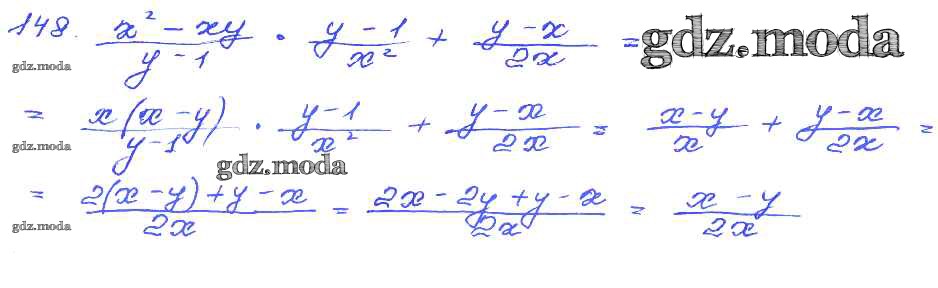 148. (x² - xy)/(y - 1) · (y - 1)/x² + (y - x)/2x = gdz.moda
gdz.moda
= x(x - y)/(y - 1) · (y - 1)/x² + (y - x)/2x = (x - y)/x + (y - x)/2x =
gdz.moda
gdz.moda
= (2(x - y) + y - x)/2x = (2x - 2y + y - x)/2x = (x - y)/2x
gdz.moda